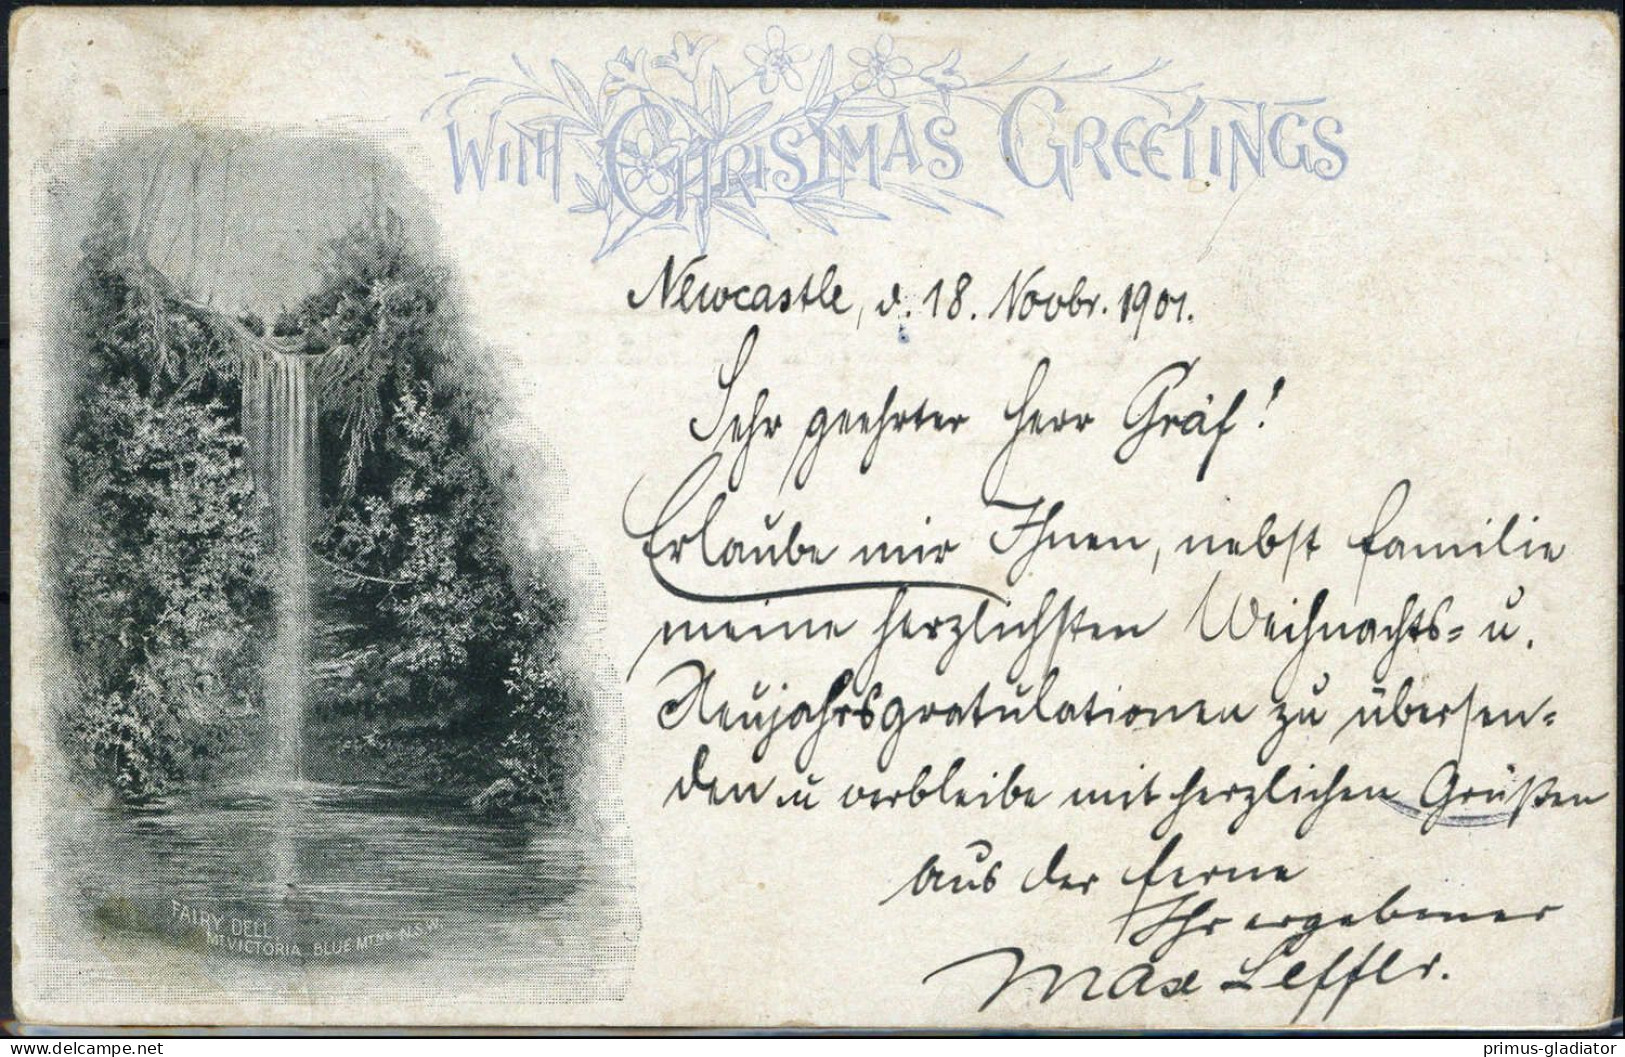 With Christmas Greetings
Newcastle, d. 18. Novbr. 1901.
Sehr geehrter Herr Gräf!
Erlaube mir Ihnen, nebst Familie
meine herzlichsten Weihnachts- u.
Neujahrsgratulationen zu übersen-
den u verbleibe mit herzlichen Grüßen
aus der Ferne
Ihr ergebener
Max Leffler.
FAIRY DELL
MT VICTORIA, BLUE MTNS N.S.W.
www.delcampe.net
primus-gladiator